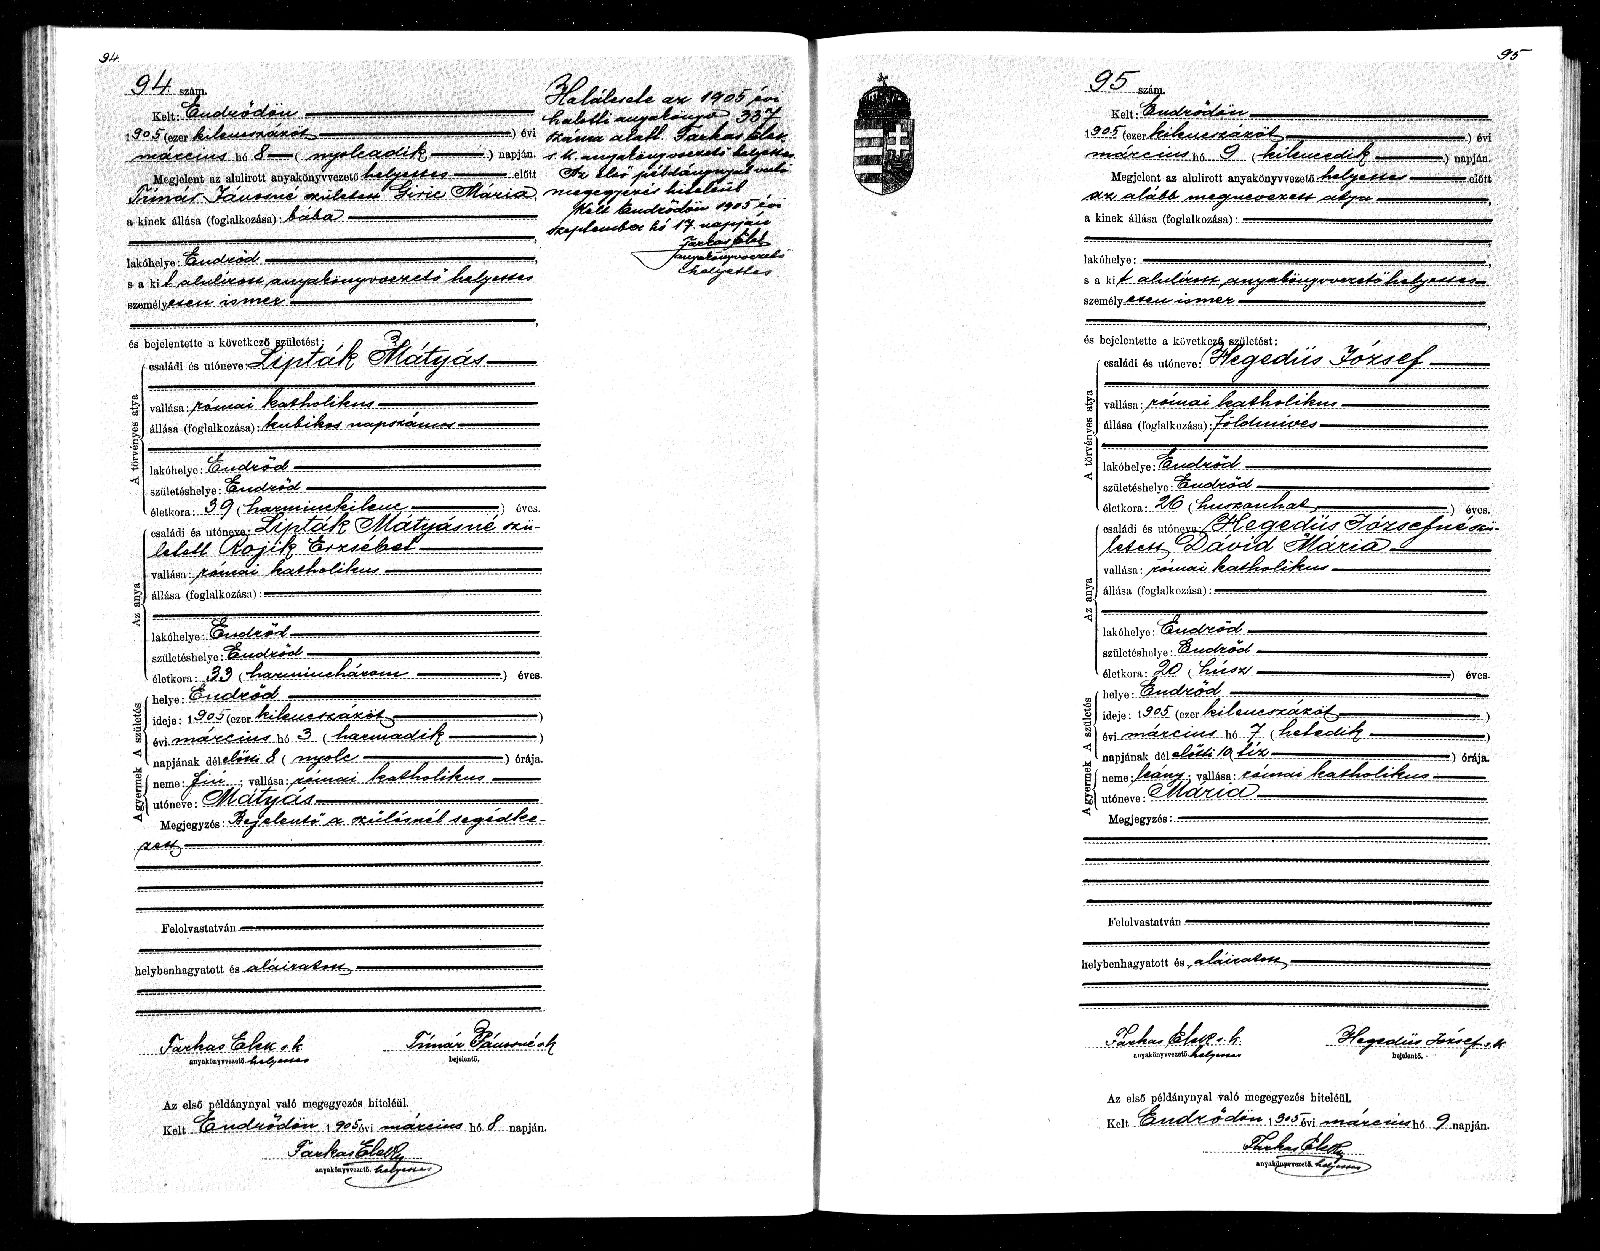 94
94 szám.
Kelt: Endrődön
1905 (ezer kilencszázöt) évi
március hó 8 (nyolcadik) napján.
Megjelent az alulirott anyakönyvvezető helyettes előtt
Timár Jánosné született Giric Mária
a kinek állása (foglalkozása): bába
lakóhelye: Endrőd
s a kit alulirott anyakönyvvezető helyettes
személyesen ismer
és bejelentette a következő születést:
A törvényes atya
családi és utóneve: Lipták Mátyás
vallása: római katholikus
állása (foglalkozása): kubikos napszámos
lakóhelye: Endrőd
születéshelye: Endrőd
életkora: 39 (harminckilenc) éves.
Az anya
családi és utóneve: Lipták Mátyásné szü-
letett Rojik Erzsébet
vallása: római katholikus
állása (foglalkozása):
lakóhelye: Endrőd
születéshelye: Endrőd
életkora: 33 (harminchárom) éves.
A születés
helye: Endrőd
ideje: 1905 (ezer kilencszázöt)
évi március hó 3 (harmadik)
napjának délelőtti 8 (nyolc) órája.
A gyermek
neme: fiú; vallása: római katholikus
utóneve: Mátyás
Megjegyzés: Bejelentő a szülésnél segédke-
zett
Felolvastatván
helybenhagyatott és aláiratott
Farkas Elek s.k. Timár Jánosné s.k.
anyakönyvvezető helyettes bejelentő.
Az első példánynyal való megegyezés hiteléül.
Kelt Endrődön 1905 évi március hó 8 napján.
Farkas Elek
anyakönyvvezető. helyettes
Halálesete az 1905 évi
halotti anyakönyv 387
száma alatt. Farkas Elek
s.k. anyakönyvvezető helyettes
Az első példánynyal való
megegyezés hiteléül
Kelt Endrődön 1905 évi
szeptember hó 17. napján
Farkas Elek
anyakönyvvezető
helyettes
95
95 szám.
Kelt: Endrődön
1905 (ezer kilencszázöt) évi
március hó 9 (kilencedik) napján.
Megjelent az alulirott anyakönyvvezető helyettes előtt
az alább megnevezett atya
a kinek állása (foglalkozása):
lakóhelye:
s a kit alulirott anyakönyvvezető helyettes
személyesen ismer
és bejelentette a következő születést:
A törvényes atya
családi és utóneve: Hegedüs József
vallása: római katholikus
állása (foglalkozása): földmives
lakóhelye: Endrőd
születéshelye: Endrőd
életkora: 26 (huszonhat) éves.
Az anya
családi és utóneve: Hegedüs Józsefné szü-
letett Dávid Mária
vallása: római katholikus
állása (foglalkozása):
lakóhelye: Endrőd
születéshelye: Endrőd
életkora: 20 (húsz) éves.
A születés
helye: Endrőd
ideje: 1905 (ezer kilencszázöt)
évi március hó 7 (hetedik)
napjának délelőtti 10 (tíz) órája.
A gyermek
neme: leány; vallása: római katholikus
utóneve: Mária
Megjegyzés:
Felolvastatván
helybenhagyatott és aláiratott
Farkas Elek s.k. Hegedüs József s.k.
anyakönyvvezető. helyettes bejelentő.
Az első példánynyal való megegyezés hiteléül.
Kelt Endrődön 1905 évi március hó 9 napján.
Farkas Elek
anyakönyvvezető. helyettes